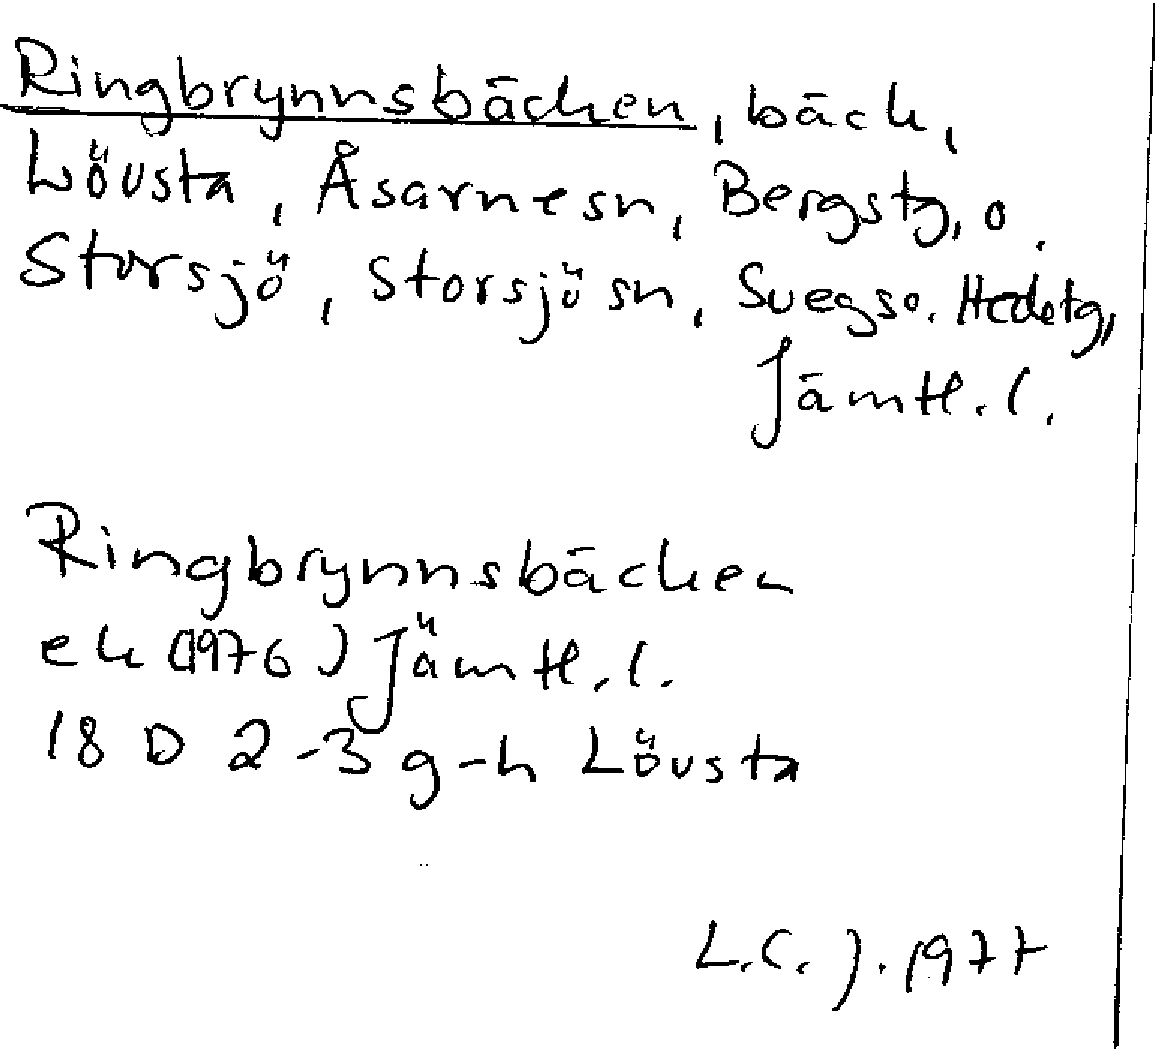 Ringbrynnsbäcken, bäck,
Lövsta, Åsarnesn, Bergstg, o.
Storsjö, Storsjösn, Svegso. Hedetg,
Jämtl. l.
Ringbrynnsbäcken
ek (1976) Jämtl. l.
18 D 2-3 g-h Lövsta
L.C. J. 1977